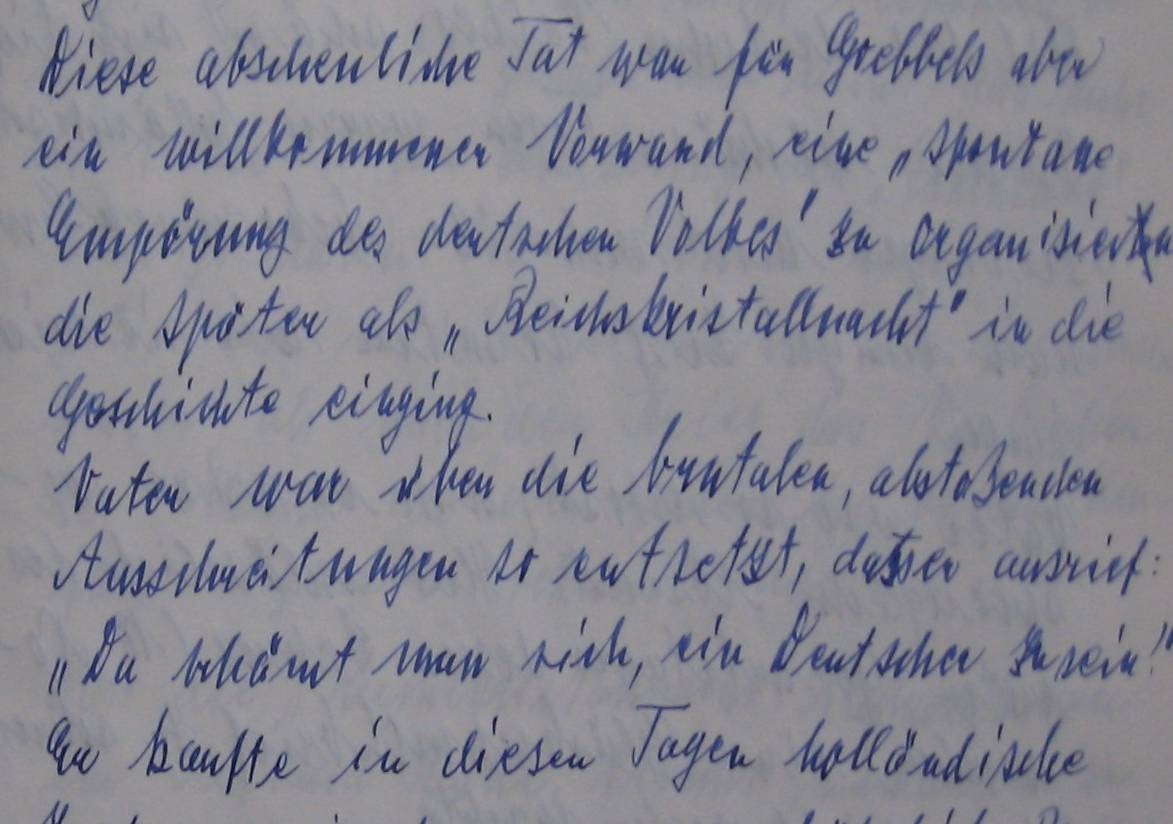 Diese abscheuliche Tat war für Goebbels aber
ein willkommener Vorwand, eine „spontane
Empörung des deutschen Volkes" zu organisieren
die später als „Reichskristallnacht" in die
Geschichte einging.
Vater war über die brutalen, abstoßenden
Ausschreitungen so entsetzt, dass er ausrief:
„Da schämt man sich, ein Deutscher zu sein!"
Er kaufte in diesen Tagen holländische